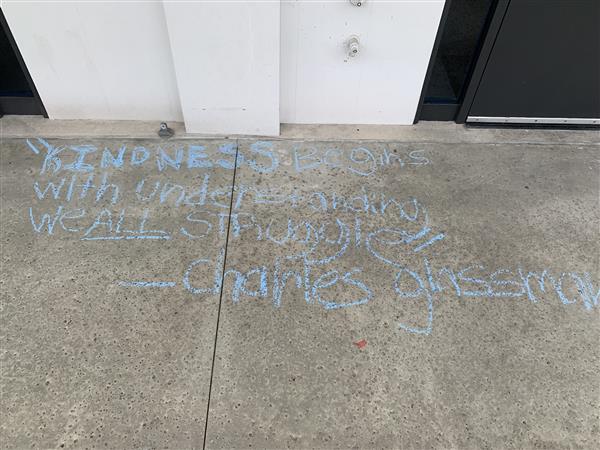 "KINDNESS Begins
with understanding
we ALL struggle"
— Charles glassman